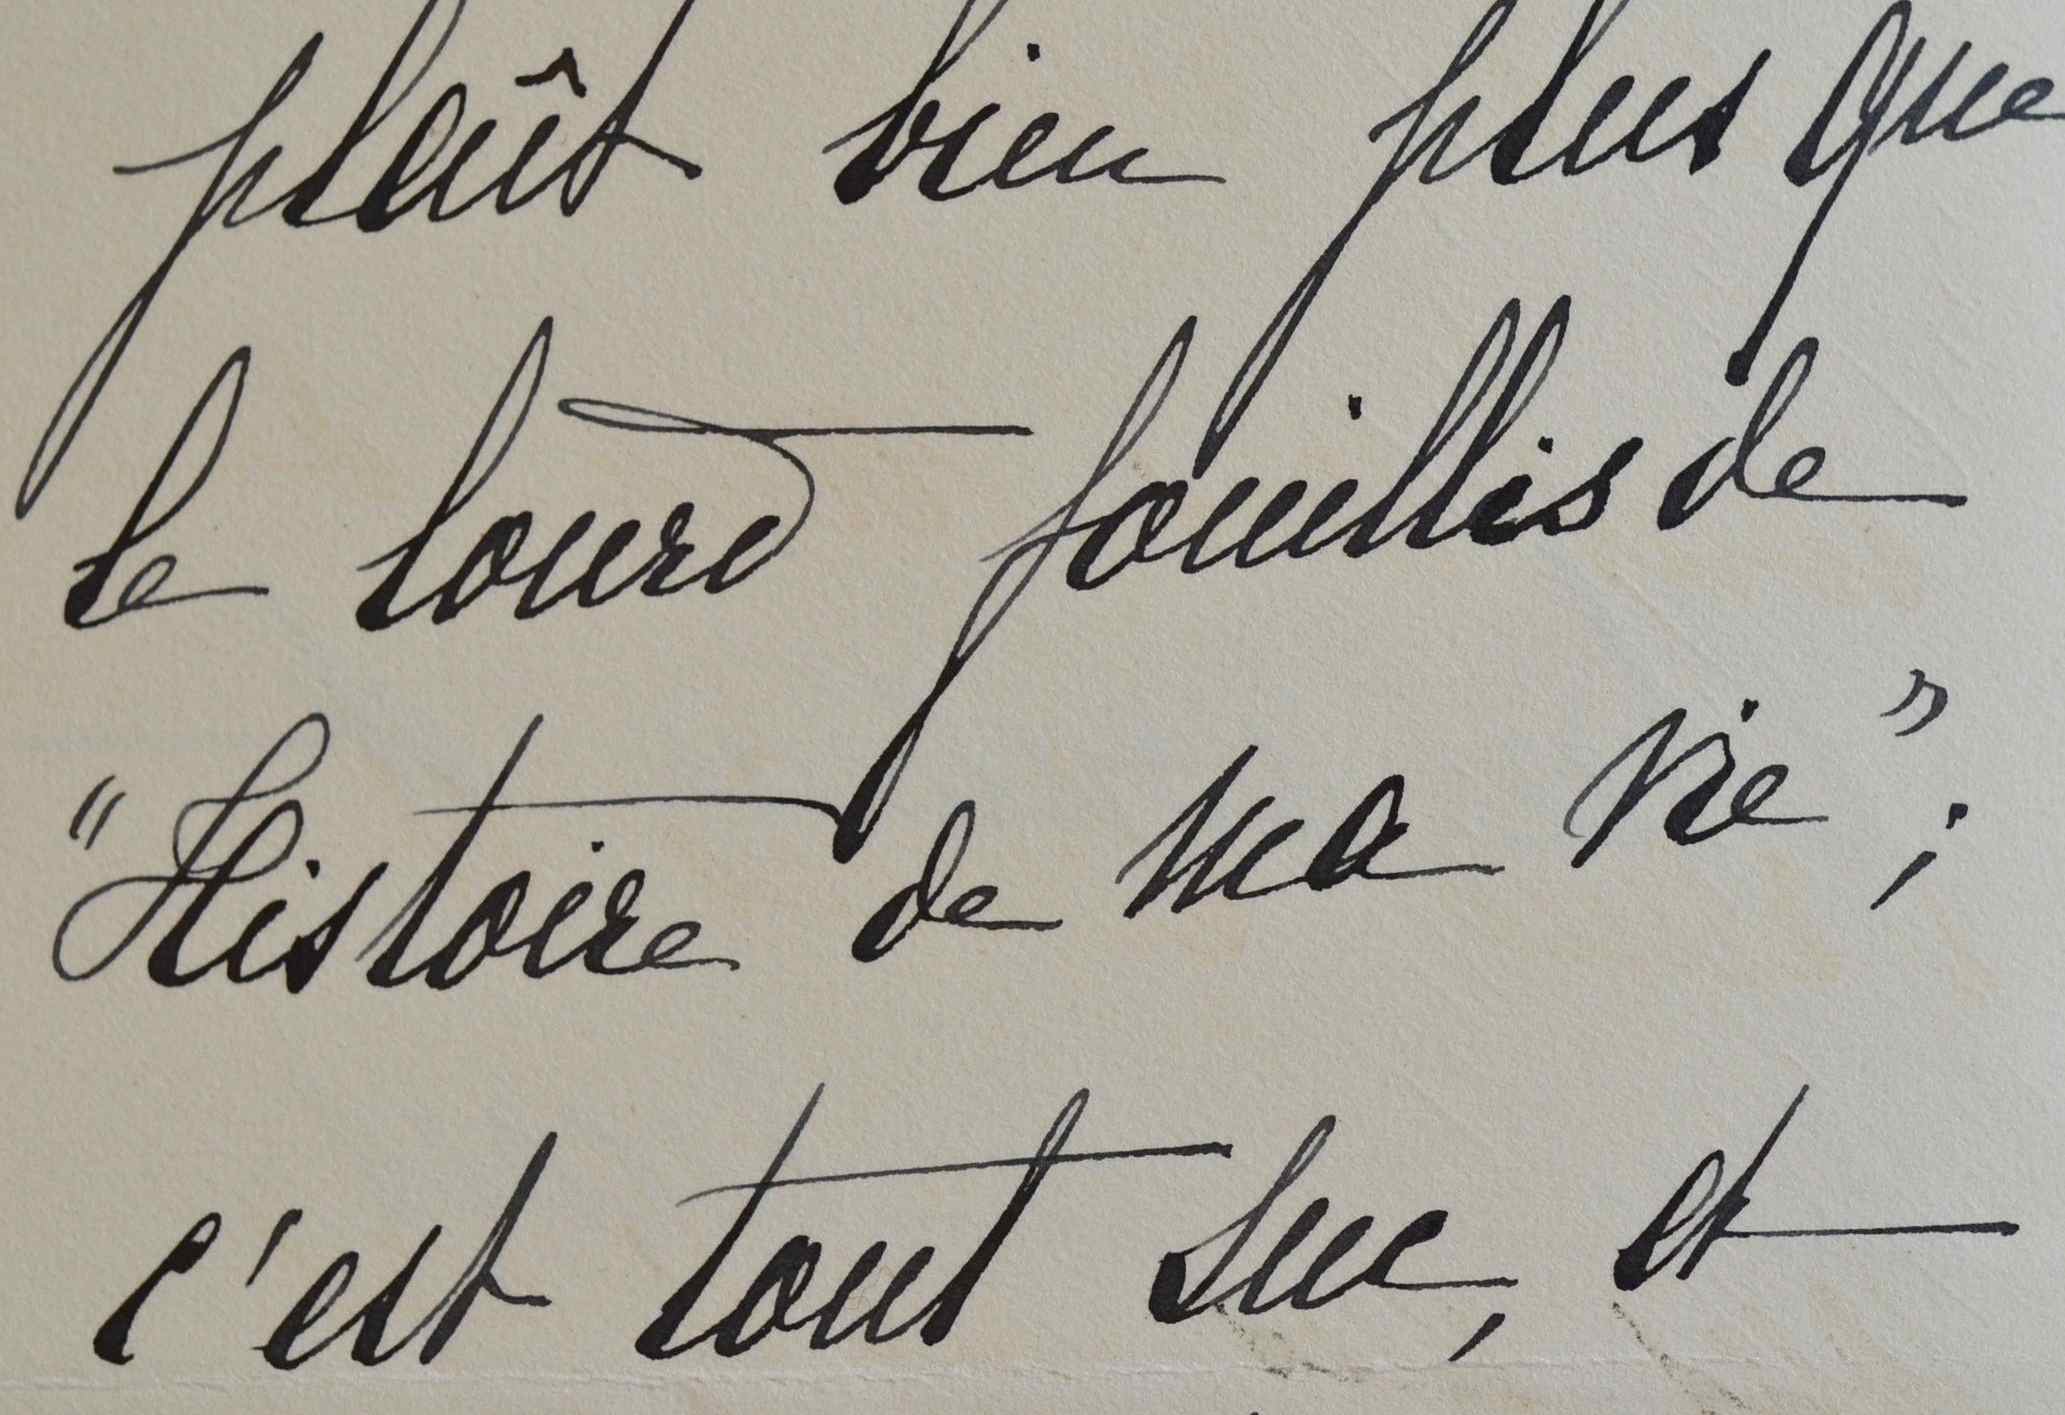 pleût bien plus que
le lourd fouillis de
"Histoire de ma vie";
c'est tout suc, et